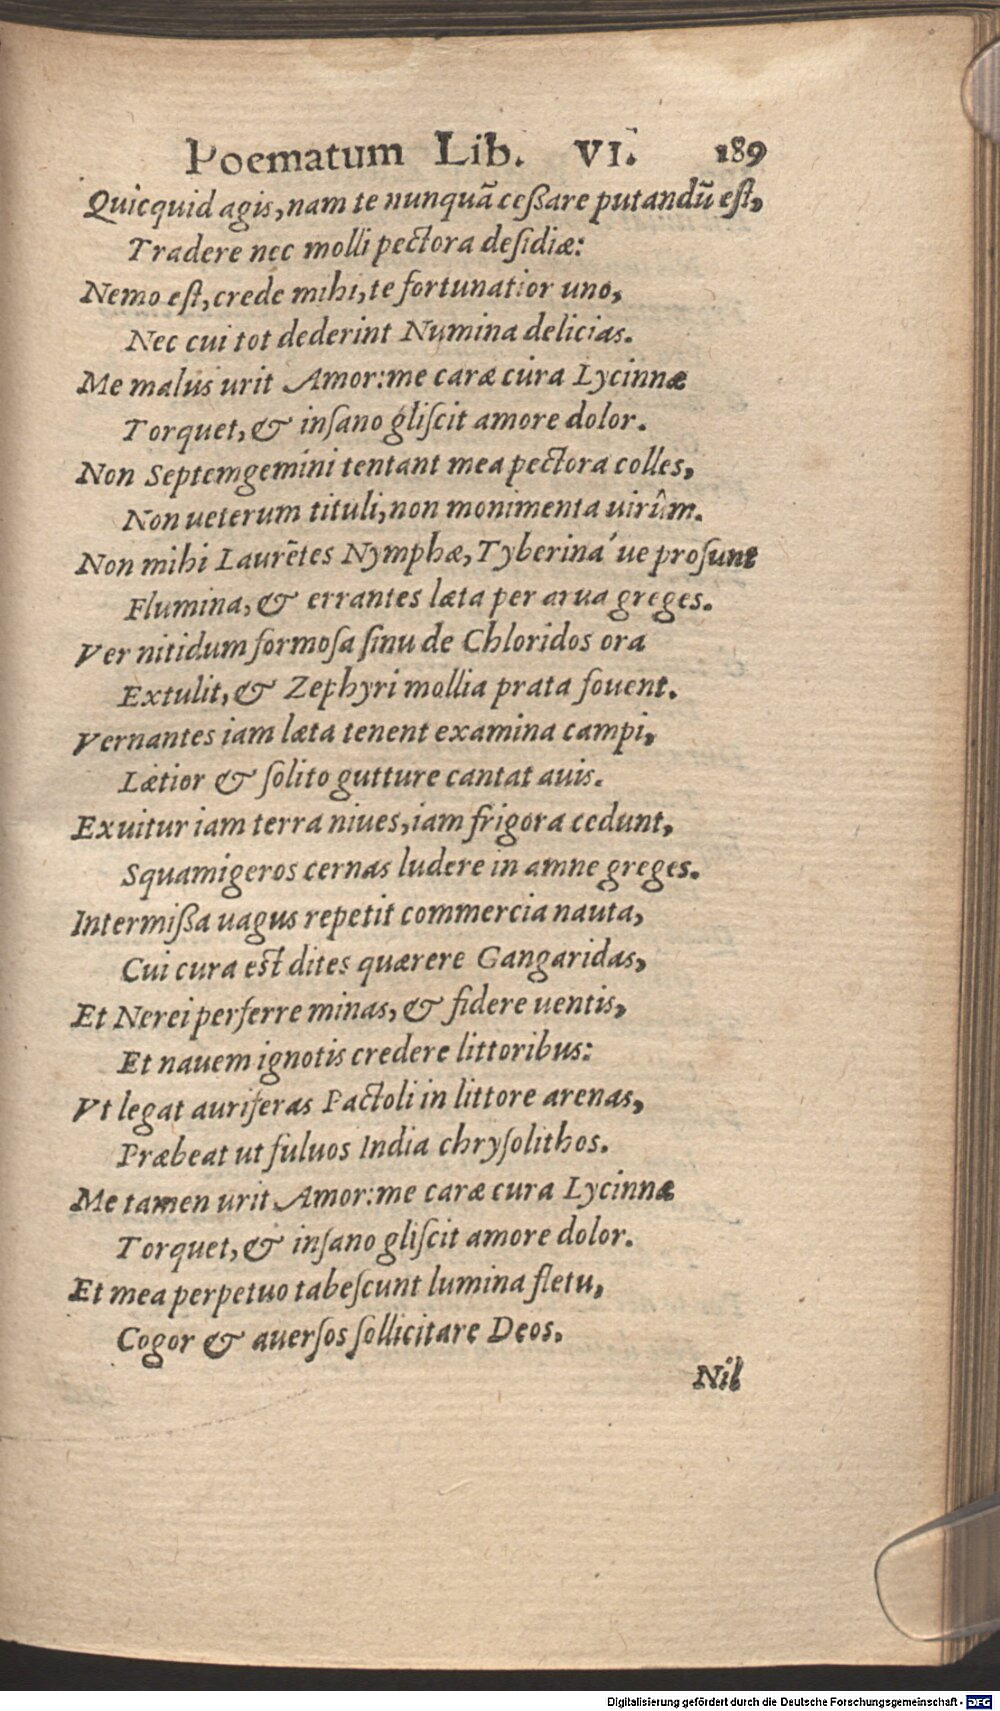 Poematum Lib. VI. 189
Quicquid agis, nam te nunquã ceßare putandũ eſt,
Tradere nec molli pectora deſidiæ:
Nemo eſt, crede mihi, te fortunatior uno,
Nec cui tot dederint Numina delicias.
Me malus urit Amor: me caræ cura Lycinnæ
Torquet, & inſano gliſcit amore dolor.
Non Septemgemini tentant mea pectora colles,
Non ueterum tituli, non monimenta uirûm.
Non mihi Laurẽtes Nymphæ, Tyberina´ue proſunt
Flumina, & errantes læta per arua greges.
Ver nitidum formoſa ſinu de Chloridos ora
Extulit, & Zephyri mollia prata fouent.
Vernantes iam læta tenent examina campi,
Lætior & ſolito gutture cantat auis.
Exuitur iam terra niues, iam frigora cedunt,
Squamigeros cernas ludere in amne greges.
Intermißa uagus repetit commercia nauta,
Cui cura est dites quærere Gangaridas,
Et Nerei perferre minas, & fidere uentis,
Et nauem ignotis credere littoribus:
Vt legat auriferas Pactoli in littore arenas,
Præbeat ut fuluos India chryſolithos.
Me tamen urit Amor: me caræ cura Lycinnæ
Torquet, & inſano gliſcit amore dolor.
Et mea perpetuo tabeſcunt lumina fletu,
Cogor & auerſos ſollicitare Deos.
Nil
Digitalisierung gefördert durch die Deutsche Forschungsgemeinschaft - DFG